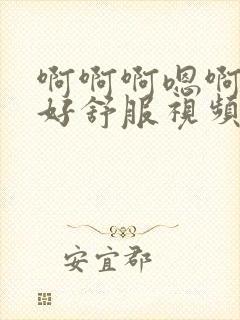 啊啊啊嗯啊
好舒服視頻
安宜郡